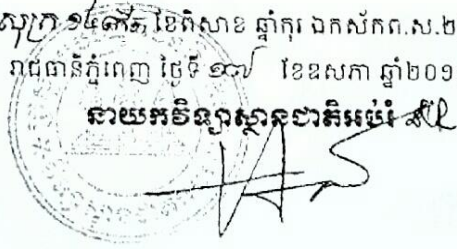 សុក្រ ១៤កើត ខែពិសាខ ឆ្នាំកុរ ឯកស័កព.ស.២
រាជធានីភ្នំពេញ ថ្ងៃទី ១៧ ខែឧសភា ឆ្នាំ២០១
នាយកវិទ្យាស្ថានជាតិអប់រំ